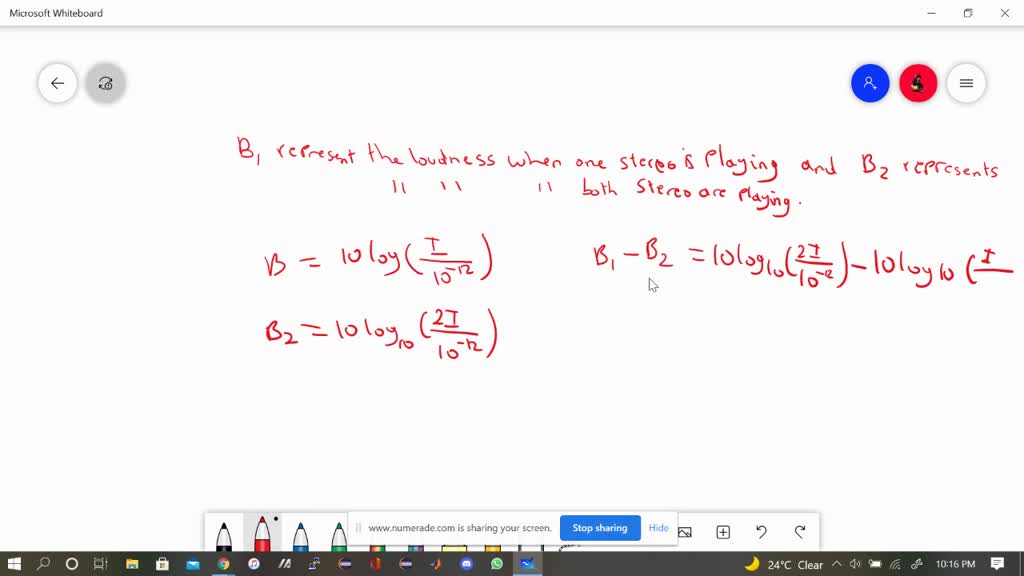 Microsoft Whiteboard
B₁ represent the loudness when one stereo is Playing and B₂ represents
" " " both Stereo are Playing.
B = 10 log (I / 10⁻¹²)
B₁ − B₂ = 10 log₁₀ (2I / 10⁻¹²) − 10 log₁₀ (I /
B₂ = 10 log₁₀ (2I / 10⁻¹²)
www.numerade.com is sharing your screen. Stop sharing Hide
24°C Clear 10:16 PM